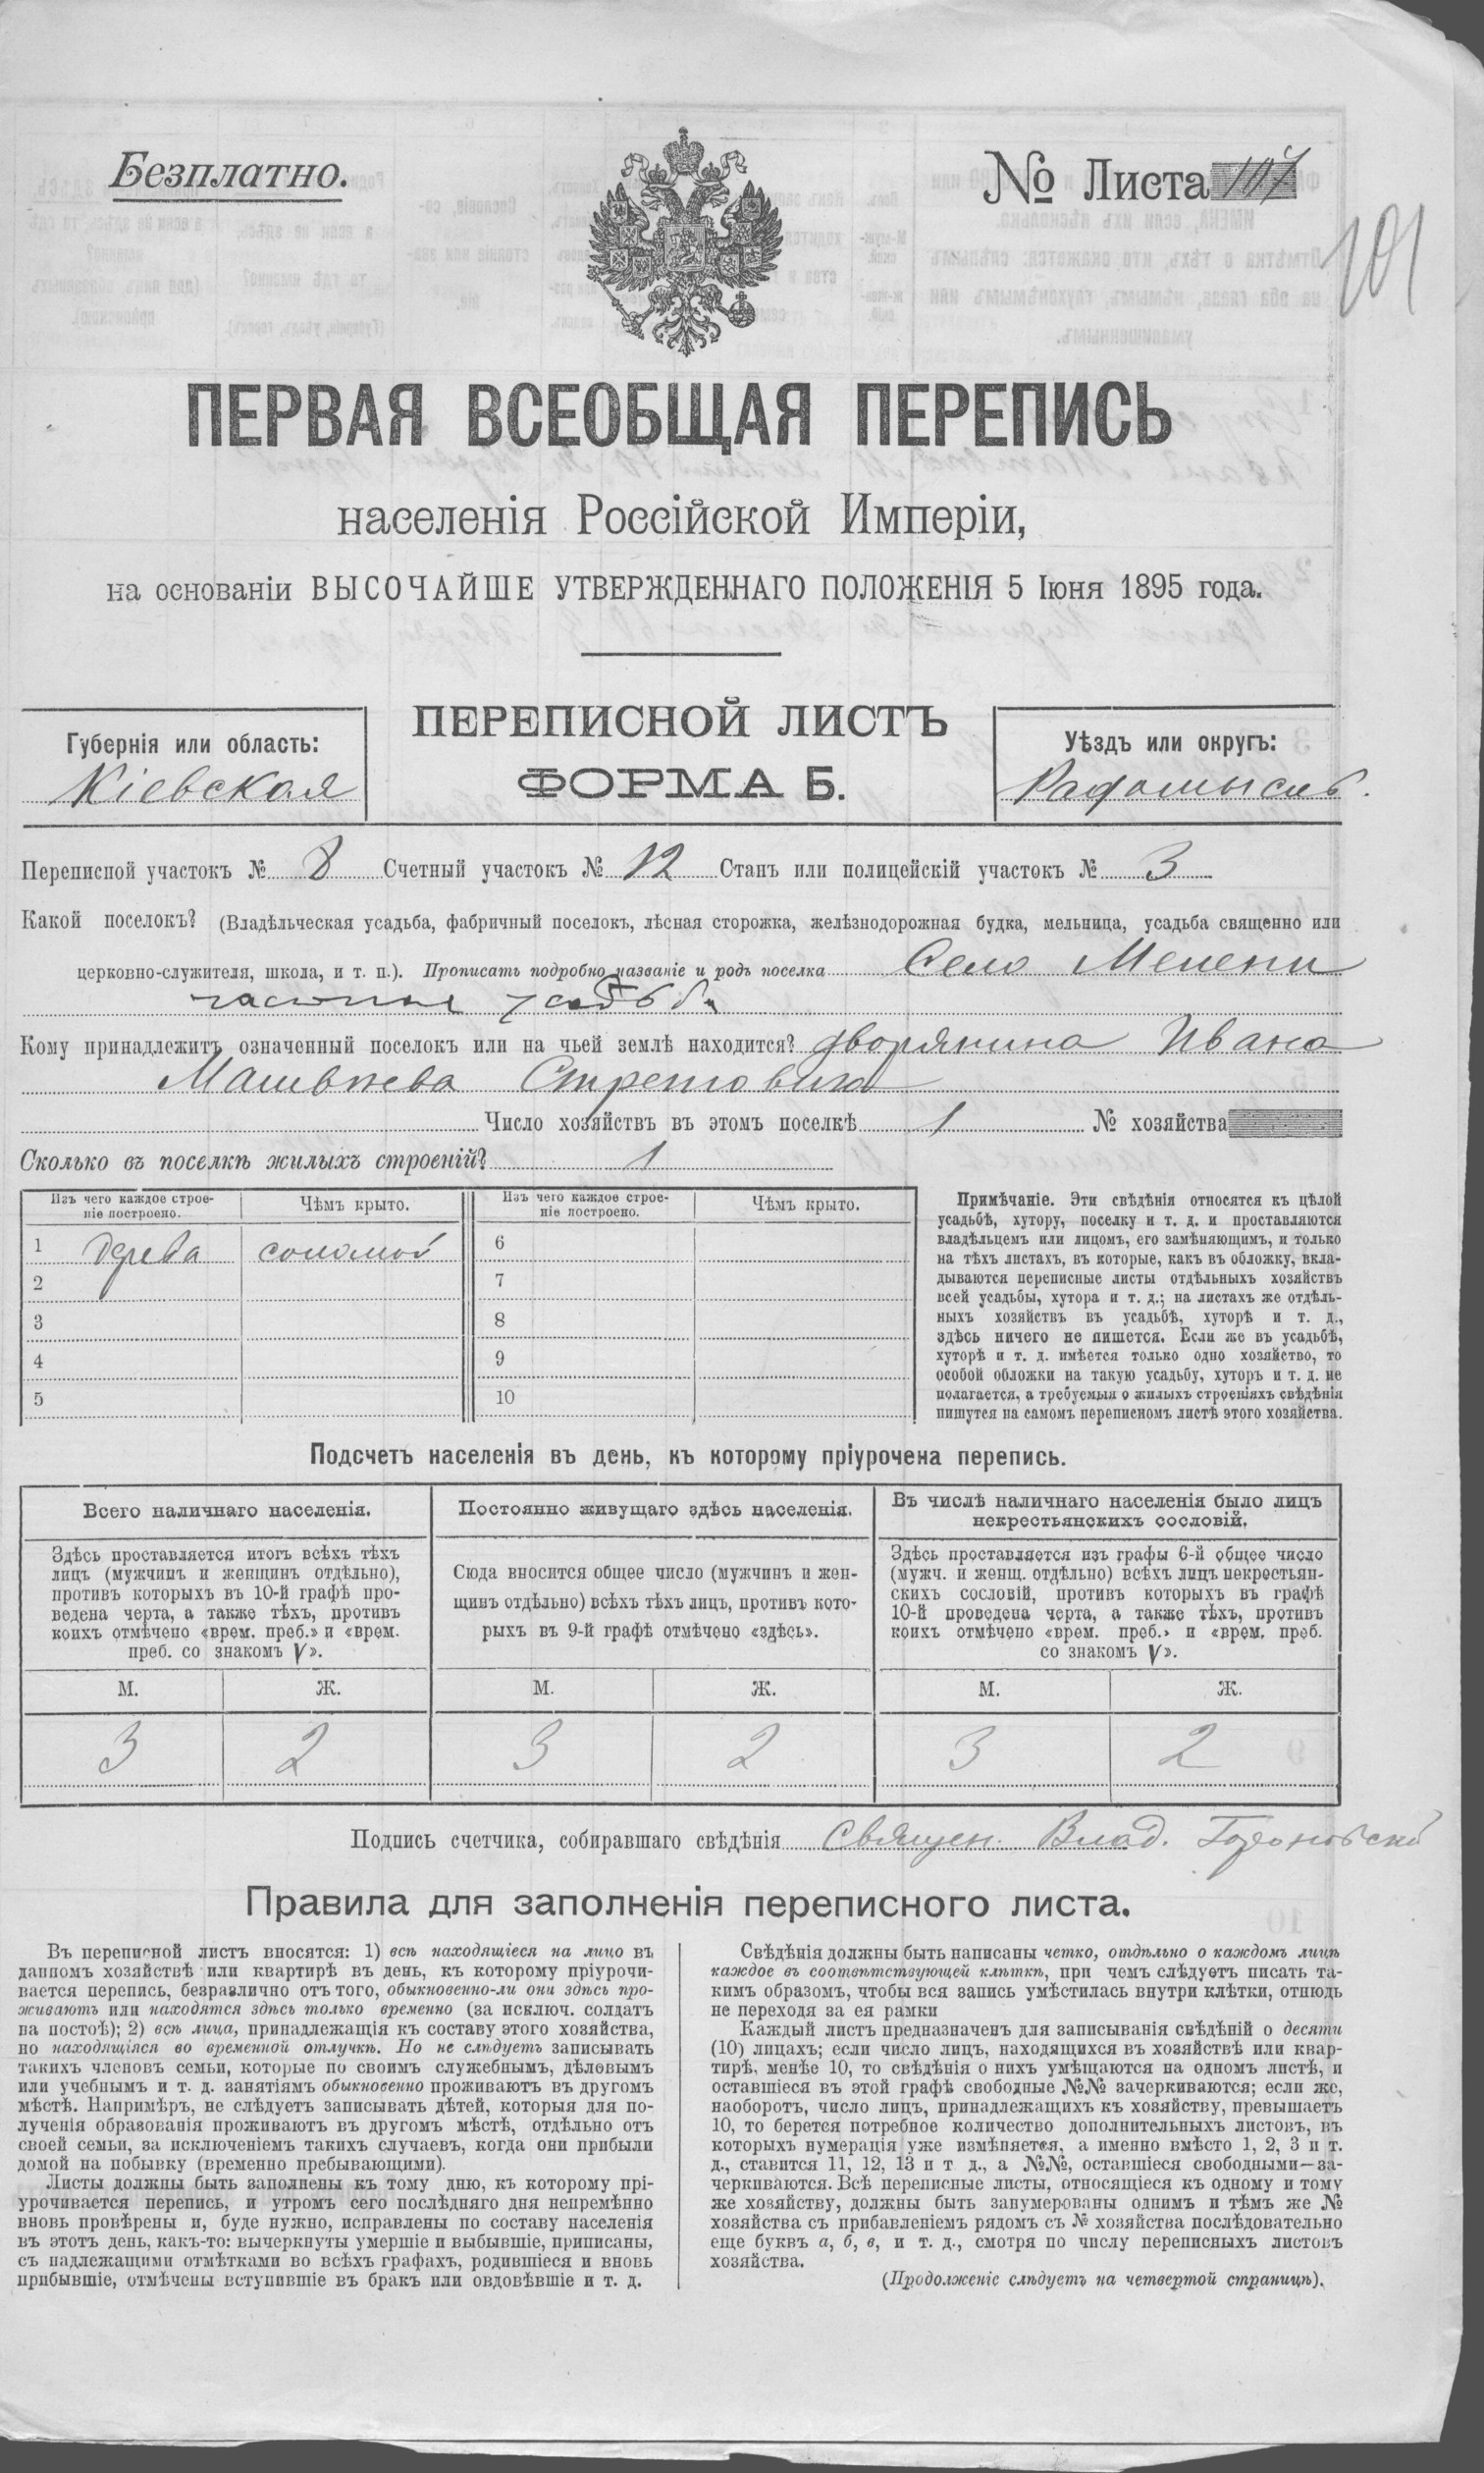 Безплатно.
№ Листа 107
101
ПЕРВАЯ ВСЕОБЩАЯ ПЕРЕПИСЬ
населенія Россійской Имперіи,
на основаніи ВЫСОЧАЙШЕ УТВЕРЖДЕННАГО ПОЛОЖЕНІЯ 5 Іюня 1895 года.
Губернія или область:
Кіевская
ПЕРЕПИСНОЙ ЛИСТЪ
ФОРМА Б.
Уѣздъ или округъ:
Радомысль.
Переписной участокъ № 8 Счетный участокъ № 12 Станъ или полицейскій участокъ № 3
Какой поселокъ? (Владѣльческая усадьба, фабричный поселокъ, лѣсная сторожка, желѣзнодорожная будка, мельница, усадьба священно или
церковно-служителя, школа, и т. п.). Прописать подробно названіе и родъ поселка Село Мелени
Кому принадлежитъ означенный поселокъ или на чьей землѣ находится? дворянина Ивана
Матвѣева
Число хозяйствъ въ этомъ поселкѣ 1 № хозяйства
Сколько въ поселкѣ жилыхъ строеній? 1
Изъ чего каждое строе-
ніе построено.
Чѣмъ крыто.
Изъ чего каждое строе-
ніе построено.
Чѣмъ крыто.
1 дерева соломой 6
2 7
3 8
4 9
5 10
Примѣчаніе. Эти свѣдѣнія относятся къ цѣлой
усадьбѣ, хутору, поселку и т. д. и проставляются
владѣльцемъ или лицомъ, его замѣняющимъ, и только
на тѣхъ листахъ, въ которые, какъ въ обложку, вкла-
дываются переписные листы отдѣльныхъ хозяйствъ
всей усадьбы, хутора и т. д.; на листахъ же отдѣль-
ныхъ хозяйствъ въ усадьбѣ, хуторѣ и т. д.,
здѣсь ничего не пишется. Если же въ усадьбѣ,
хуторѣ и т. д. имѣется только одно хозяйство, то
особой обложки на такую усадьбу, хуторъ и т. д. не
полагается, а требуемыя о жилыхъ строеніяхъ свѣдѣнія
пишутся на самомъ переписномъ листѣ этого хозяйства.
Подсчетъ населенія въ день, къ которому пріурочена перепись.
Всего наличнаго населенія.
Здѣсь проставляется итогъ всѣхъ тѣхъ
лицъ (мужчинъ и женщинъ отдѣльно),
противъ которыхъ въ 10-й графѣ про-
ведена черта, а также тѣхъ, противъ
коихъ отмѣчено «врем. преб.» и «врем.
преб. со знакомъ V».
Постоянно живущаго здѣсь населенія.
Сюда вносится общее число (мужчинъ и жен-
щинъ отдѣльно) всѣхъ тѣхъ лицъ, противъ кото-
рыхъ въ 9-й графѣ отмѣчено «здѣсь».
Въ числѣ наличнаго населенія было лицъ
некрестьянскихъ сословій.
Здѣсь проставляется изъ графы 6-й общее число
(мужч. и женщ. отдѣльно) всѣхъ лицъ некрестьян-
скихъ сословій, противъ которыхъ въ графѣ
10-й проведена черта, а также тѣхъ, противъ
коихъ отмѣчено «врем. преб.» и «врем. преб.
со знакомъ V».
М. Ж. М. Ж. М. Ж.
3 2 3 2 3 2
Подпись счетчика, собиравшаго свѣдѣнія Священ. Влад.
Правила для заполненія переписного листа.
Въ переписной листъ вносятся: 1) всѣ находящіеся на лицо въ
данномъ хозяйствѣ или квартирѣ въ день, къ которому пріурочи-
вается перепись, безразлично отъ того, обыкновенно-ли они здѣсь про-
живаютъ или находятся здѣсь только временно (за исключ. солдатъ
на постоѣ); 2) всѣ лица, принадлежащія къ составу этого хозяйства,
но находящіяся во временной отлучкѣ. Но не слѣдуетъ записывать
такихъ членовъ семьи, которые по своимъ служебнымъ, дѣловымъ
или учебнымъ и т. д. занятіямъ обыкновенно проживаютъ въ другомъ
мѣстѣ. Напримѣръ, не слѣдуетъ записывать дѣтей, которыя для по-
лученія образованія проживаютъ въ другомъ мѣстѣ, отдѣльно отъ
своей семьи, за исключеніемъ такихъ случаевъ, когда они прибыли
домой на побывку (временно пребывающими).
Листы должны быть заполнены къ тому дню, къ которому прі-
урочивается перепись, и утромъ сего послѣдняго дня непремѣнно
вновь провѣрены и, буде нужно, исправлены по составу населенія
въ этотъ день, какъ-то: вычеркнуты умершіе и выбывшіе, приписаны,
съ надлежащими отмѣтками во всѣхъ графахъ, родившіеся и вновь
прибывшіе, отмѣчены вступившіе въ бракъ или овдовѣвшіе и т. д.
Свѣдѣнія должны быть написаны четко, отдѣльно о каждомъ лицѣ
каждое въ соотвѣтствующей клѣткѣ, при чемъ слѣдуетъ писать та-
кимъ образомъ, чтобы вся запись умѣстилась внутри клѣтки, отнюдь
не переходя за ея рамки
Каждый листъ предназначенъ для записыванія свѣдѣній о десяти
(10) лицахъ; если число лицъ, находящихся въ хозяйствѣ или квар-
тирѣ, менѣе 10, то свѣдѣнія о нихъ умѣщаются на одномъ листѣ, и
оставшіеся въ этой графѣ свободные №№ зачеркиваются; если же,
наоборотъ, число лицъ, принадлежащихъ къ хозяйству, превышаетъ
10, то берется потребное количество дополнительныхъ листовъ, въ
которыхъ нумерація уже измѣняется, а именно вмѣсто 1, 2, 3 и т.
д., ставится 11, 12, 13 и т д., а №№, оставшіеся свободными—за-
черкиваются. Всѣ переписные листы, относящіеся къ одному и тому
же хозяйству, должны быть занумерованы однимъ и тѣмъ же №
хозяйства съ прибавленіемъ рядомъ съ № хозяйства послѣдовательно
еще буквъ а, б, в, и т. д., смотря по числу переписныхъ листовъ
хозяйства.
(Продолженіе слѣдуетъ на четвертой страницѣ).